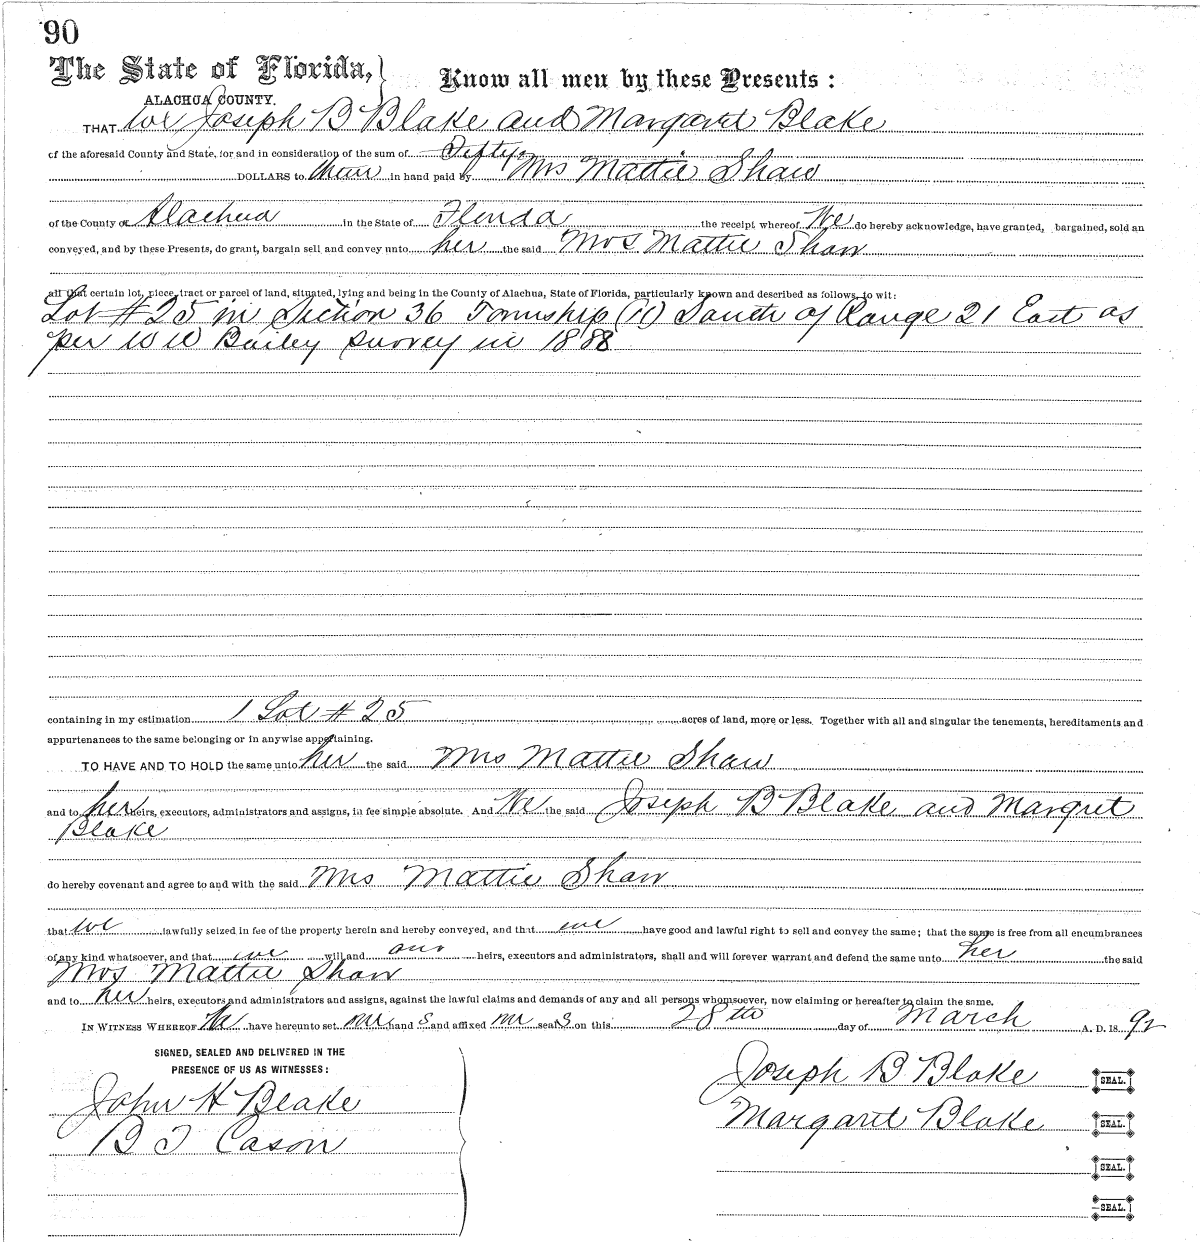 90
The State of Florida, } Know all men by these Presents:
ALACHUA COUNTY.
THAT we Joseph B Blake and Margaret Blake
of the aforesaid County and State, for and in consideration of the sum of Fifty
DOLLARS to them in hand paid by Mrs Mattie Shaw
of the County of Alachua in the State of Florida the receipt whereof We do hereby acknowledge, have granted, bargained, sold an
conveyed, and by these Presents, do grant, bargain sell and convey unto her the said Mrs Mattie Shaw
all that certain lot, piece, tract or parcel of land, situated, lying and being in the County of Alachua, State of Florida, particularly known and described as follows, to wit:
Lot # 25 in Section 36 Township (11) South of Range 21 East as
per W W Bailey survey in 1888
containing in my estimation 1 Lot # 25 acres of land, more or less. Together with all and singular the tenements, hereditaments and
appurtenances to the same belonging or in anywise appertaining.
TO HAVE AND TO HOLD the same unto her the said Mrs Mattie Shaw
and to her heirs, executors, administrators and assigns, in fee simple absolute. And We the said Joseph B Blake and Margret
Blake
do hereby covenant and agree to and with the said Mrs Mattie Shaw
that we lawfully seized in fee of the property herein and hereby conveyed, and that we have good and lawful right to sell and convey the same; that the same is free from all encumbrances
of any kind whatsoever, and that we will and our heirs, executors and administrators, shall and will forever warrant and defend the same unto her the said
Mrs Mattie Shaw
and to her heirs, executors and administrators and assigns, against the lawful claims and demands of any and all persons whomsoever, now claiming or hereafter to claim the same.
IN WITNESS WHEREOF We have hereunto set our hand s and affixed our seal s on this 28th day of March A. D. 1892
SIGNED, SEALED AND DELIVERED IN THE
PRESENCE OF US AS WITNESSES:
Joseph B Blake SEAL.
John H Blake
Margaret Blake SEAL.
B T Cason
SEAL.
SEAL.